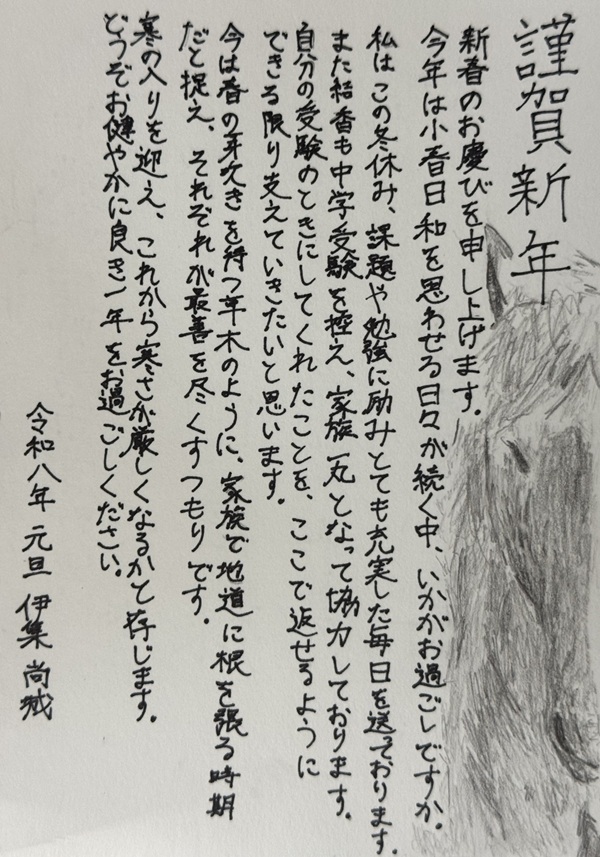 謹賀新年
新春のお慶びを申し上げます。
今年は小春日和を思わせる日々が続く中、いかがお過ごしですか。
私はこの冬休み、課題や勉強に励みとても充実した毎日を送っております。
また結香も中学受験を控え、家族一丸となって協力しております。
自分の受験のときにしてくれたことを、ここで返せるように
できる限り支えていきたいと思います。
今は春の芽吹きを待つ草木のように、家族で地道に根を張る時期
だと捉え、それぞれが最善を尽くすつもりです。
寒の入りを迎え、これから寒さが厳しくなるかと存じます。
どうぞお健やかに良き一年をお過ごしください。
令和八年 元旦 伊集 尚